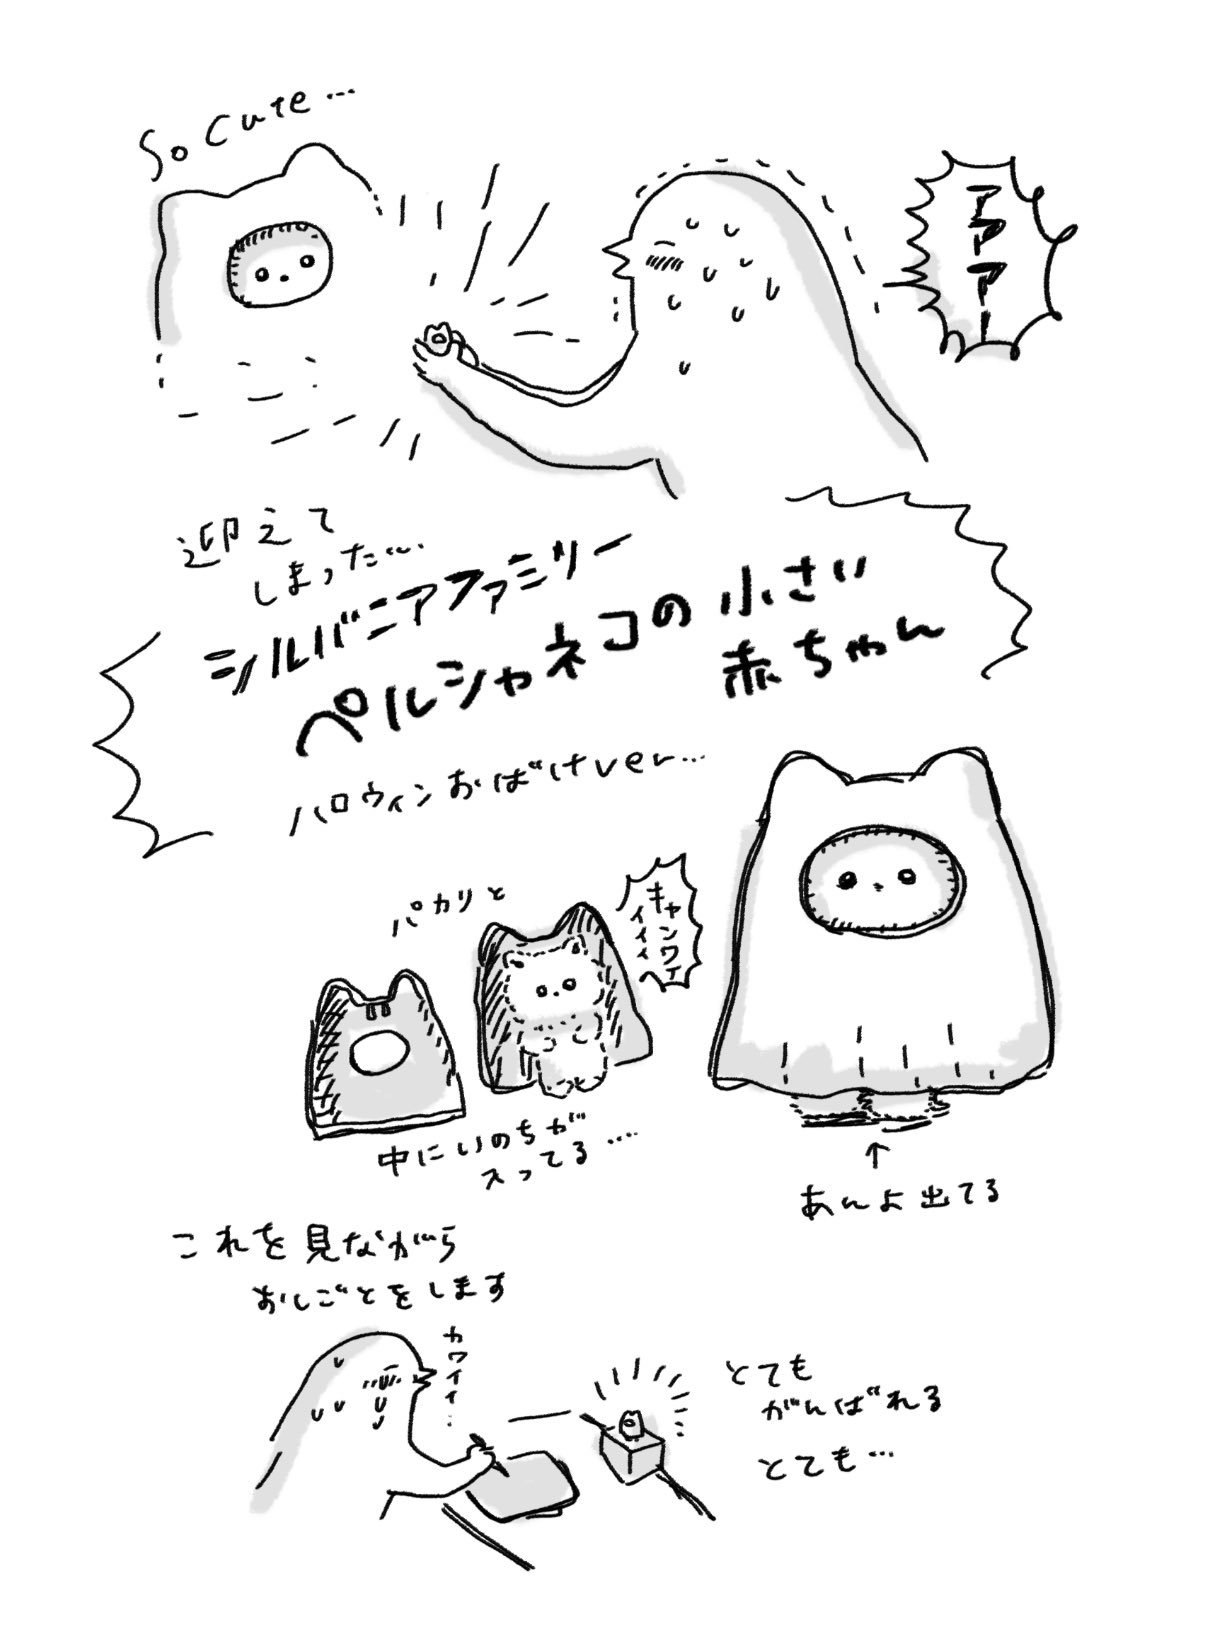 So cute…
アアアー
迎えて
しまった…
シルバニアファミリー
ペルシャネコの小さい
赤ちゃん
ハロウィンおばけver…
パカリと
キャンワイ
イイイイ
中にいのちが
入ってる…
あんよ出てる
これを見ながら
おしごとをします
カワイイ…
とても
がんばれる
とても…